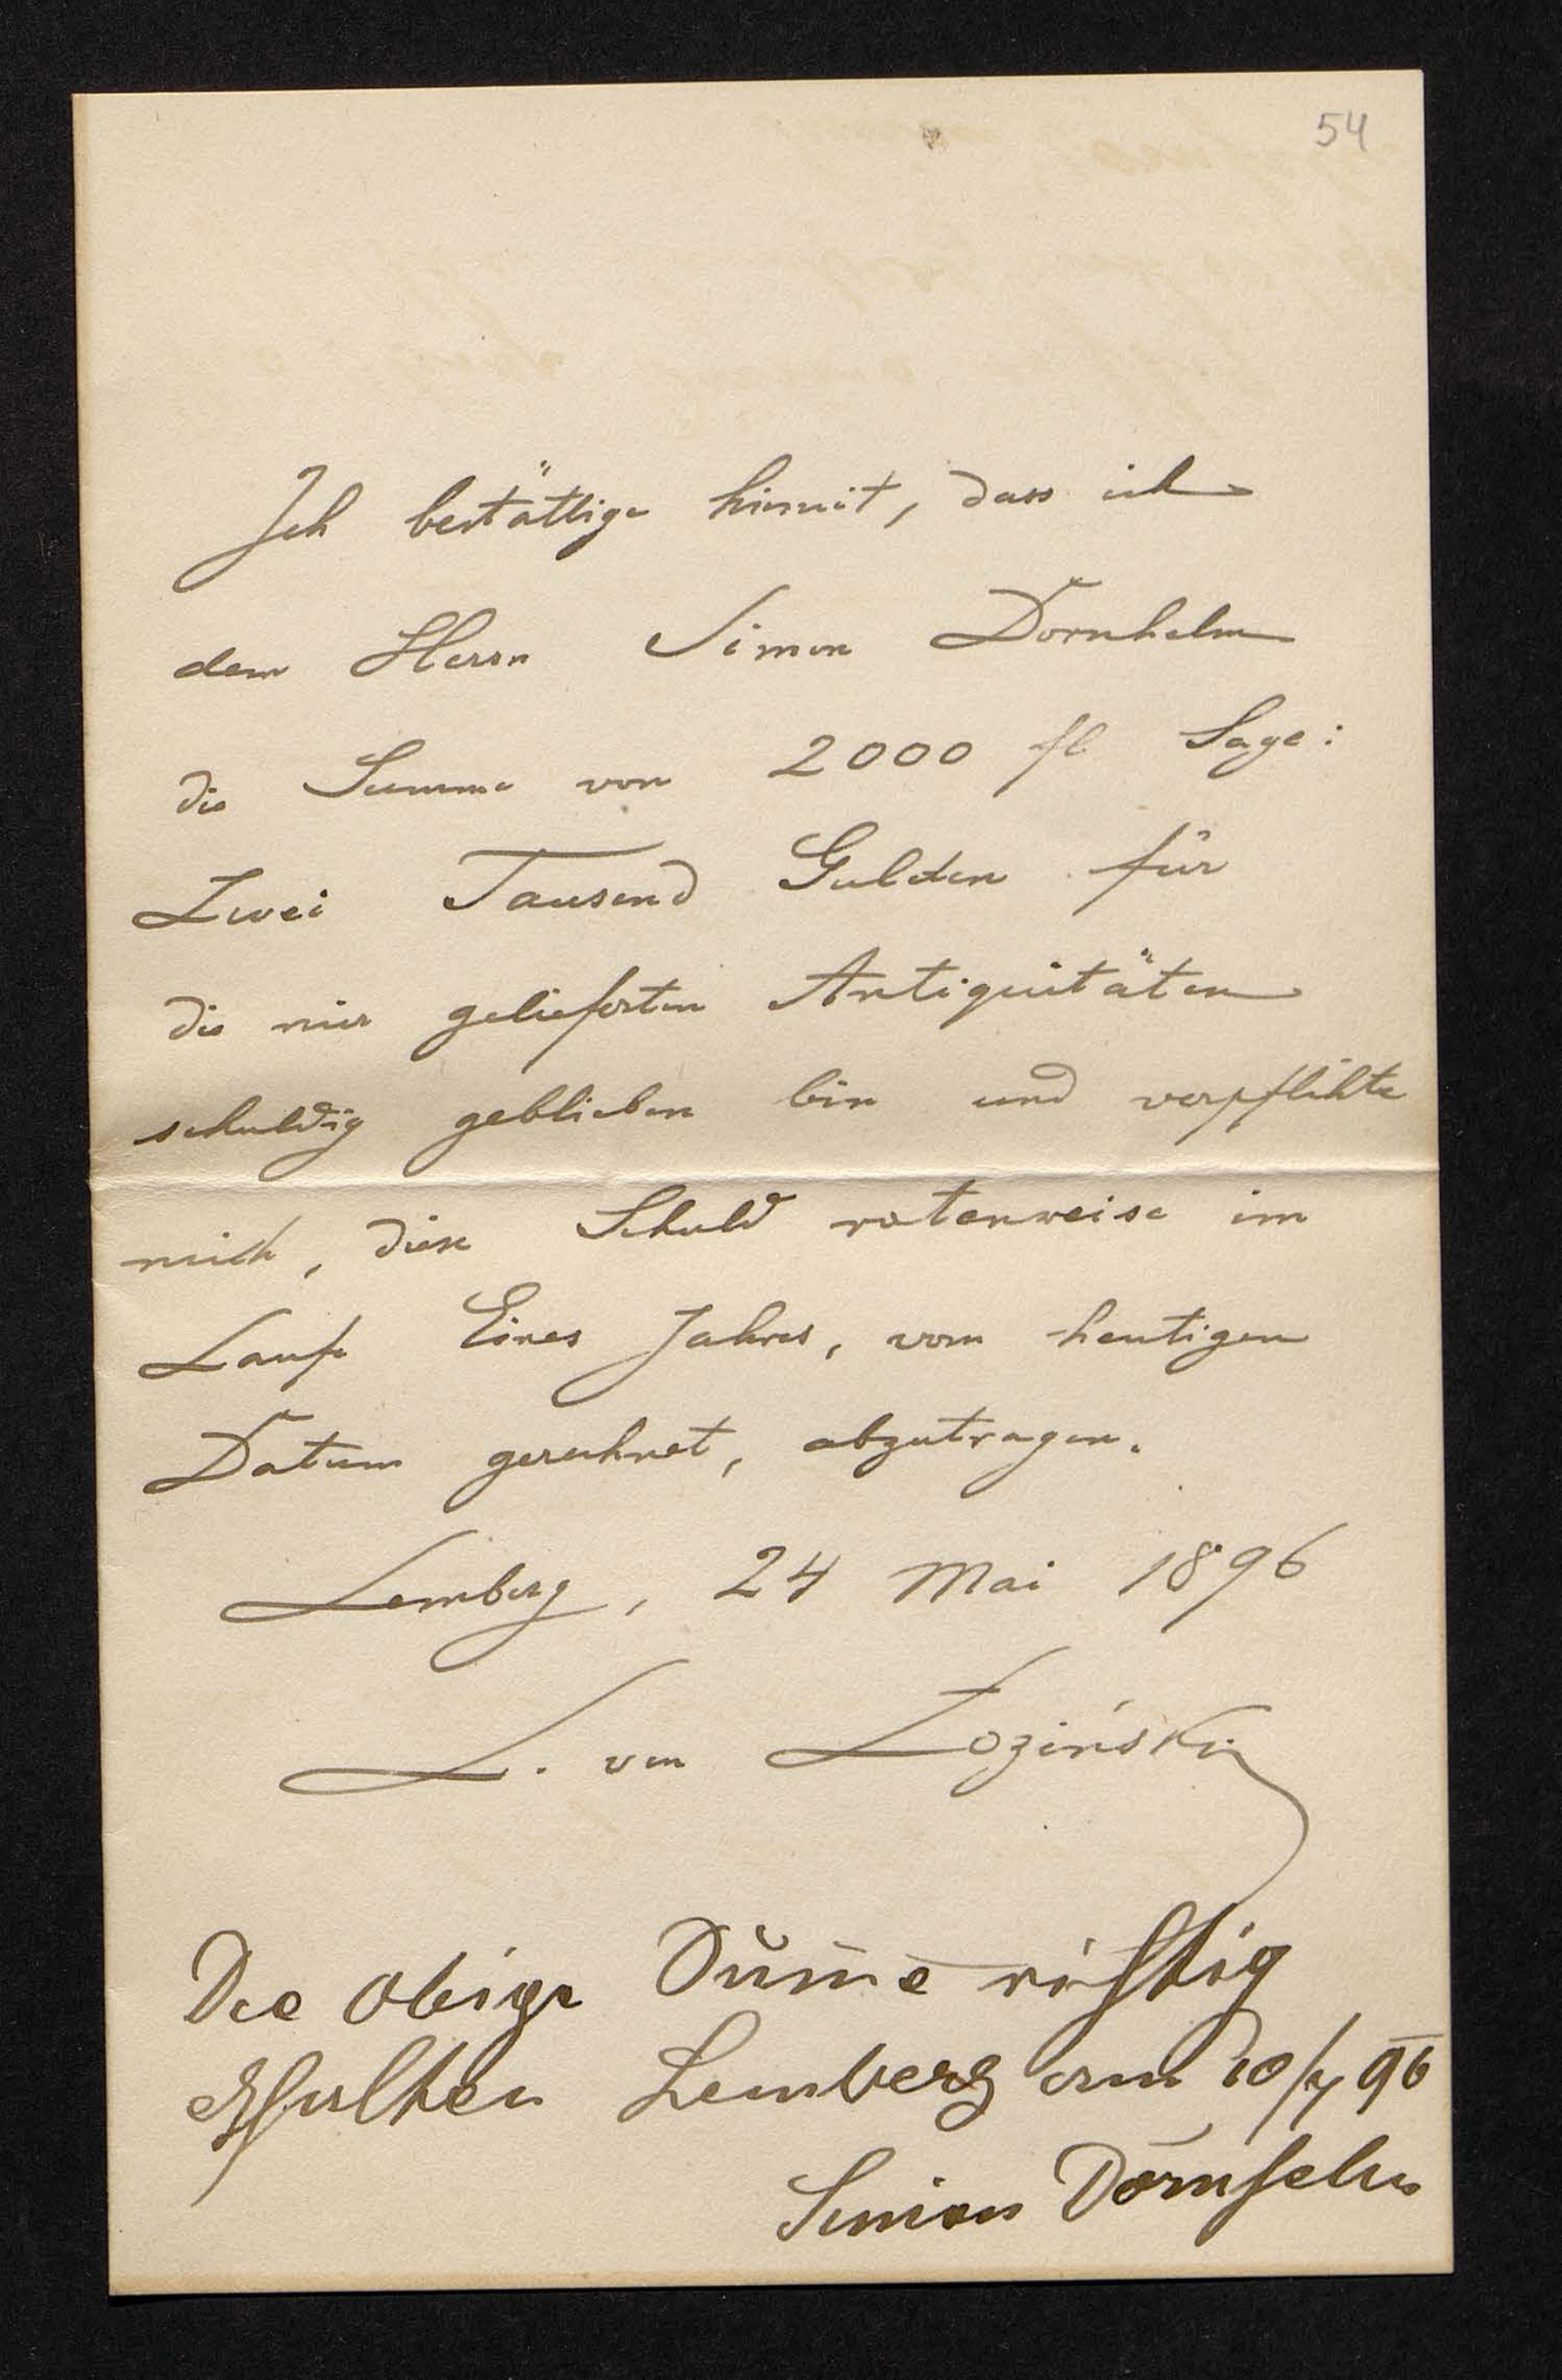 54
Ich bestättige hiemit, dass ich
dem Herrn Simon Dornhelm
die Summe von 2000 fl Sage:
Zwei Tausend Gulden für
die mir gelieferten Antiquitäten
schuldig geblieben bin und verpflihte
mich, diese Schuld ratenweise im
Laufe Eines Jahres, vom heutigen
Datum gerechnet, abzutragen.
Lemberg, 24 Mai 1896
L. von Łoziński
Die obige Sum̄e richtig
erhalten Lemberg am 10/7 96
Simon Dornhelm